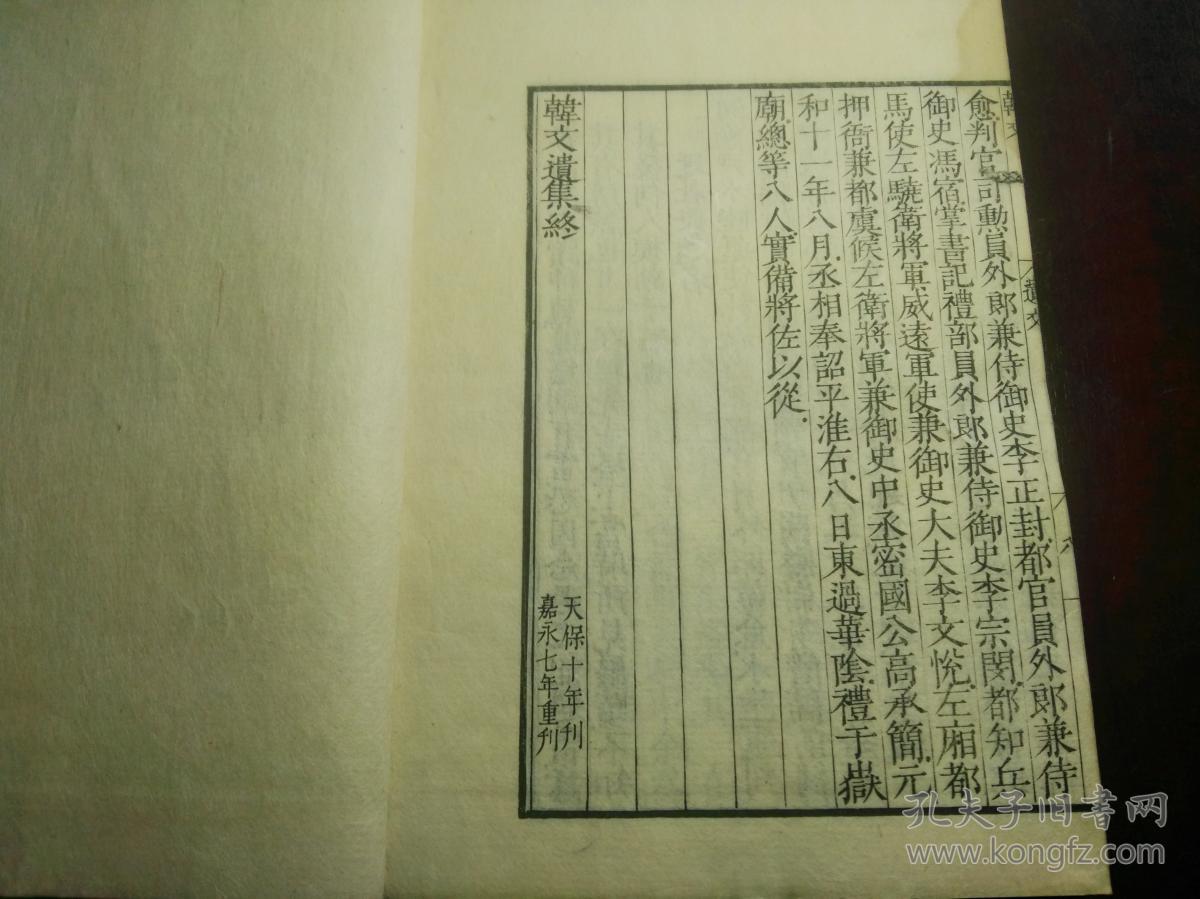 韓文
遺文
八
愈判官司勲員外郎兼侍御史李正封都官員外郎兼侍
御史馮宿掌書記禮部員外郎兼侍御史李宗閔都知兵
馬使左驍衛將軍威遠軍使兼御史大夫李文悅左廂都
押衙兼都虞候左衛將軍兼御史中丞密國公高承簡元
和十一年八月丞相奉詔平淮右八日東過華陰禮于嶽
廟總等八人實備將佐以從
韓文遺集終
天保十年刊
嘉永七年重刊
孔夫子旧书网
www.kongfz.com